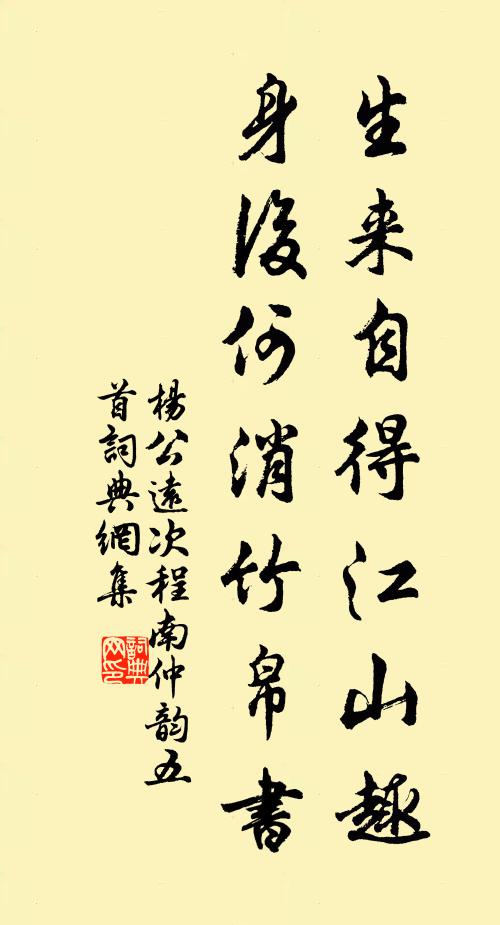 生来自得江山趣
身後何消竹帛書
楊公遠次程南仲韵五
首詞典網集
詞典網印